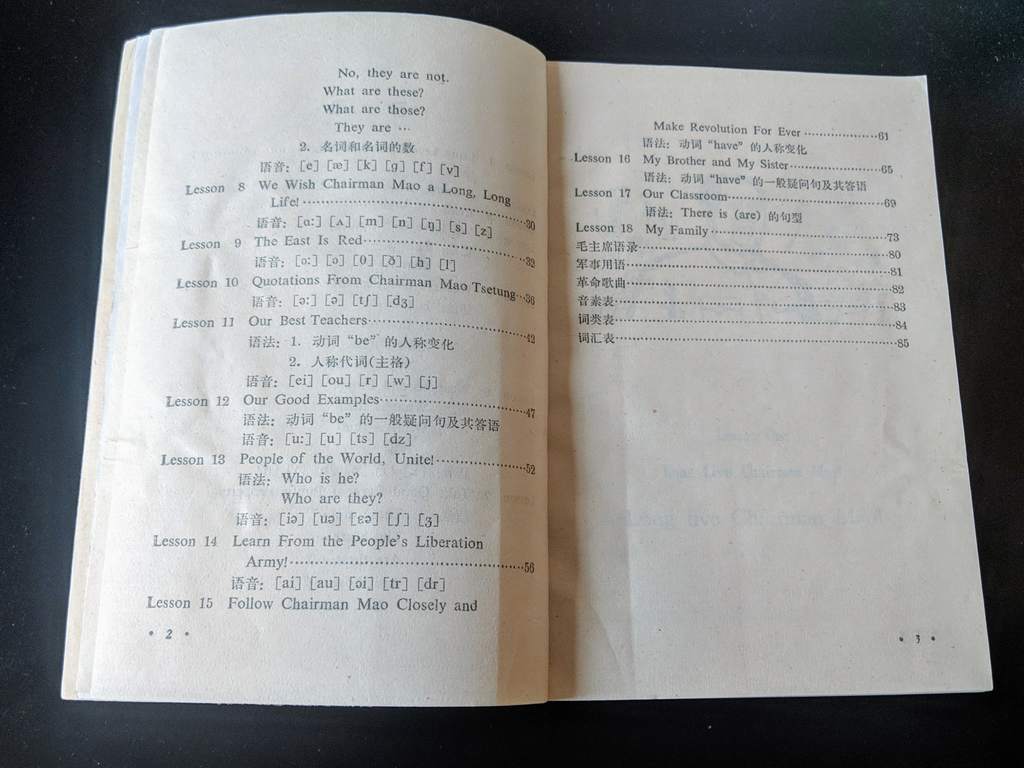 No, they are not.
What are these?
What are those?
They are …
2. 名词和名词的数
语音: [e] [æ] [k] [g] [f] [v]
Lesson 8 We Wish Chairman Mao a Long, Long
Life!……30
语音: [ɑ:] [ʌ] [m] [n] [ŋ] [s] [z]
Lesson 9 The East Is Red……32
语音: [ɔ:] [ɔ] [θ] [ð] [h] [l]
Lesson 10 Quotations From Chairman Mao Tsetung…36
语音: [ə:] [ə] [tʃ] [dʒ]
Lesson 11 Our Best Teachers……42
语法: 1. 动词“be”的人称变化
2. 人称代词(主格)
语音: [ei] [ou] [r] [w] [j]
Lesson 12 Our Good Examples……47
语法: 动词“be”的一般疑问句及其答语
语音: [u:] [u] [ts] [dz]
Lesson 13 People of the World, Unite!……52
语法: Who is he?
Who are they?
语音: [iə] [uə] [ɛə] [ʃ] [ʒ]
Lesson 14 Learn From the People's Liberation
Army!……56
语音: [ai] [au] [ɔi] [tr] [dr]
Lesson 15 Follow Chairman Mao Closely and
• 2 •
Make Revolution For Ever……61
语法: 动词“have”的人称变化
Lesson 16 My Brother and My Sister……65
语法: 动词“have”的一般疑问句及其答语
Lesson 17 Our Classroom……69
语法: There is (are) 的句型
Lesson 18 My Family……73
毛主席语录……80
军事用语……81
革命歌曲……82
音素表……83
词类表……84
词汇表……85
• 3 •